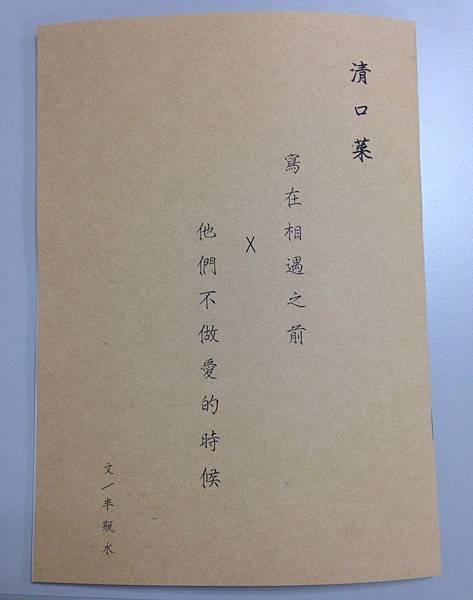 清口菜
寫在相遇之前
X
他們不做愛的時候
文/半瓶水